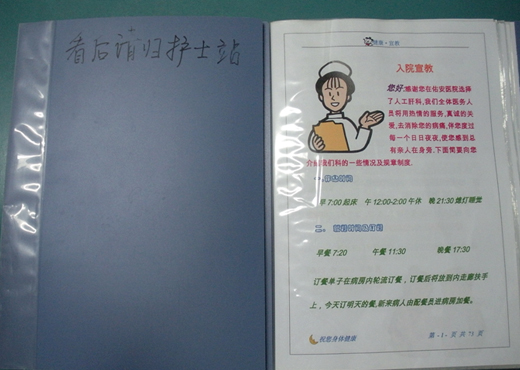 看后请归护士站
健康·宣教
入院宣教
您好:感谢您在佑安医院选择
了人工肝科,我们全体医务人
员将用热情的服务,真诚的关
爱,去消除您的病痛,伴您度过
每一个日日夜夜,使您感到总
有亲人在身旁.下面简要向您
介绍我们科的一些情况及规章制度.
早 7:00 起床 午 12:00-2:00 午休 晚 21:30 熄灯睡觉
早餐 7:20 午餐 11:30 晚餐 17:30
订餐单子在病房内轮流订餐,订餐后将放到内走廊扶手
上,今天订明天的餐,新来病人由配餐员进病房加餐。
祝您身体健康
第 -1- 页 共 71 页